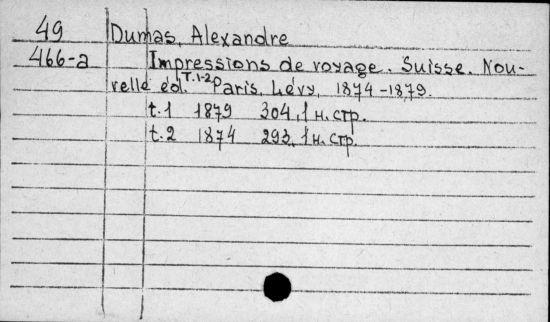 49 Dumas, Alexandre
466-a Impressions de voyage. Suisse. Nou-
velle éd. T.1-2. Paris, Lévy, 1874-1879.
t.1 1879 304, 1 н. стр.
t.2 1874 293, 1 н. стр.